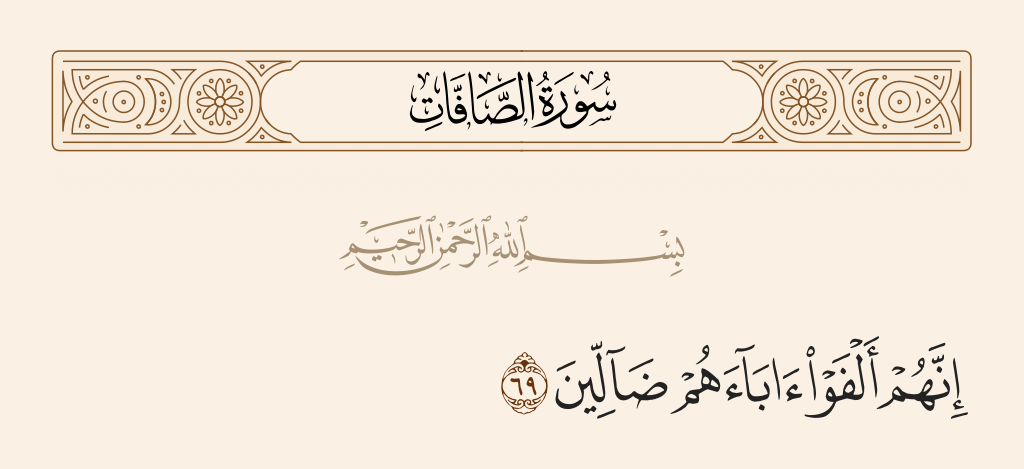 سُورَةُ الصَّافَّاتِ
بِسْمِ ٱللَّهِ ٱلرَّحْمَٰنِ ٱلرَّحِيمِ
إِنَّهُمْ أَلْفَوْا۟ ءَابَآءَهُمْ ضَآلِّينَ ٦٩